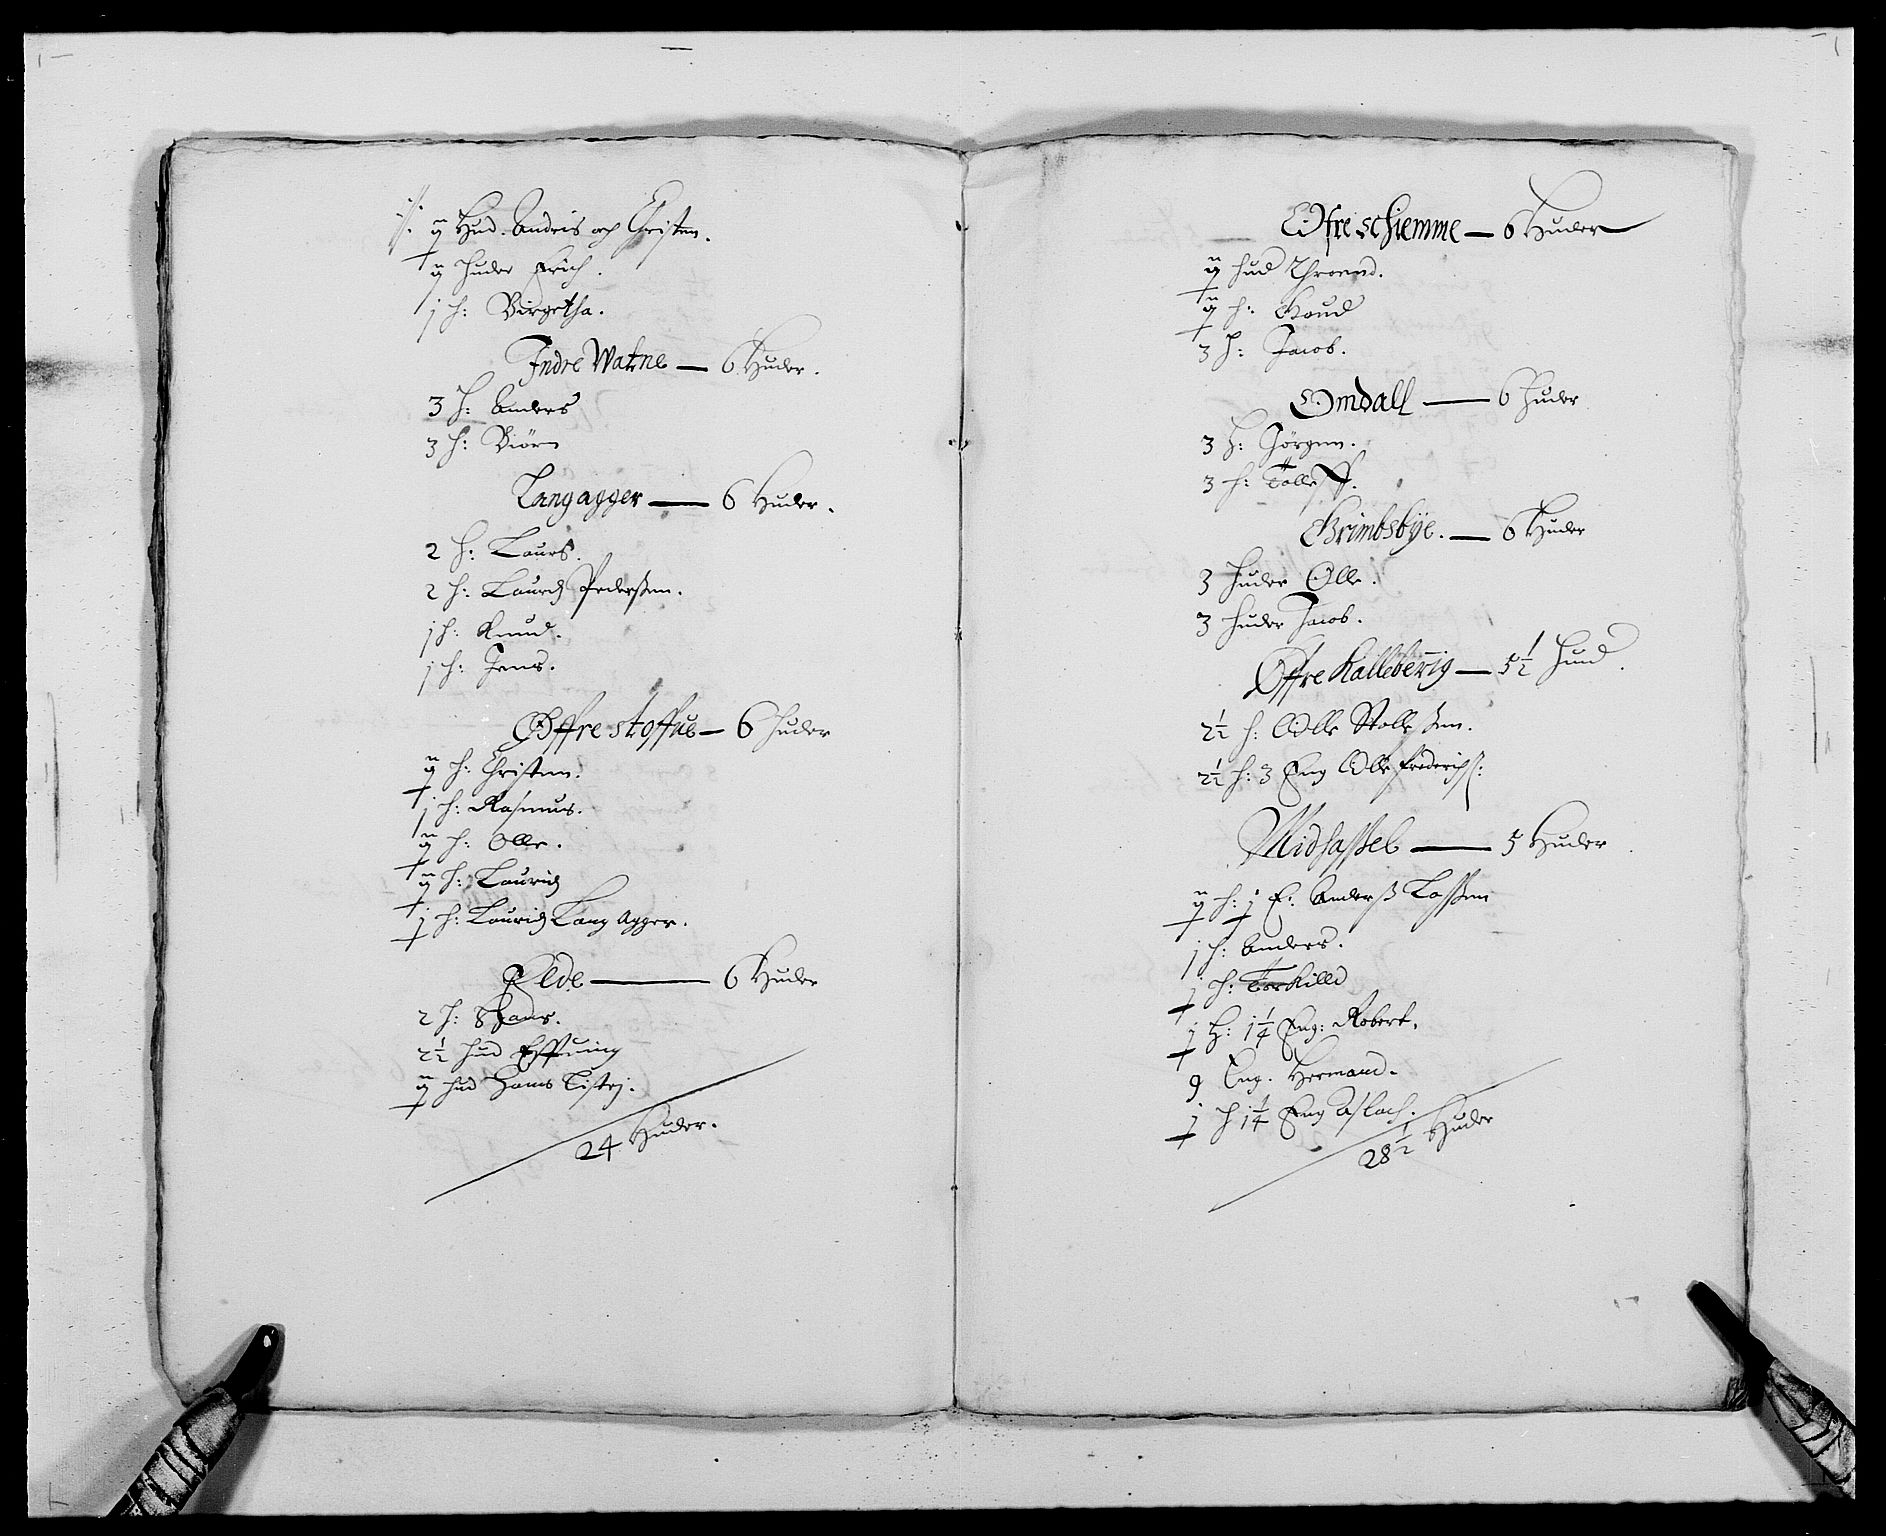 Hud. Andris och Christen.
huder Erich.
j h: Birgetha.
Indre Watne — 6 Huder.
3 h: Anders
3 h: Biörn
Langagger — 6 Huder.
2 h: Laurs.
2 h: Lauridz Pederßen.
j h: Knud.
j h: Jens.
Øffre stoffue — 6 huder
h: Christen.
j h: Rasmus.
h: Olle.
h: Lauridz
j h: Lauridz Lang Agger.
Elde — 6 Huder
2 h: Hans.
2½ hud
hud Hans
24 Huder.
Øfre schemme — 6 Huder
hud Throend.
h: Gaud
3 h: Jacob.
Omdall — 6 huder
3 h: Jörgen.
3 h: Tolleff.
Grimbsbÿe. — 6 Huder
3 huder Olle.
3 huder Jacob.
Øffre Kalleberrig — 5½ Hud.
2½ h: Olle Stolleßen.
2½ h: 3 Eng Olle Frederichs:
Midhaßel — 5 Huder
h: j E: Anderß Laßßen
j h: Anders.
j h: Torkilld
j h: 1¼ Eng: Robert.
9 Eng. Hermand.
j h 1¼ Eng Aslach.
28½ Huder